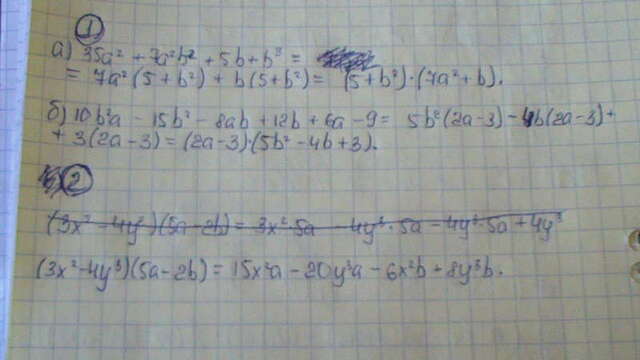 1
а) 35a² + 7a²b² + 5b + b³ =
= 7a²(5 + b²) + b(5 + b²) = (5 + b²)·(7a² + b).
б) 10b²a - 15b² - 8ab + 12b + 6a - 9 = 5b²(2a - 3) - 4b(2a - 3) +
+ 3(2a - 3) = (2a - 3)·(5b² - 4b + 3).
2
(3x² - 4y³)(5a - 2b) = 3x²·5a - 4y³·5a - 4y³·5a + 4y³
(3x² - 4y³)(5a - 2b) = 15x²a - 20y³a - 6x²b + 8y³b.